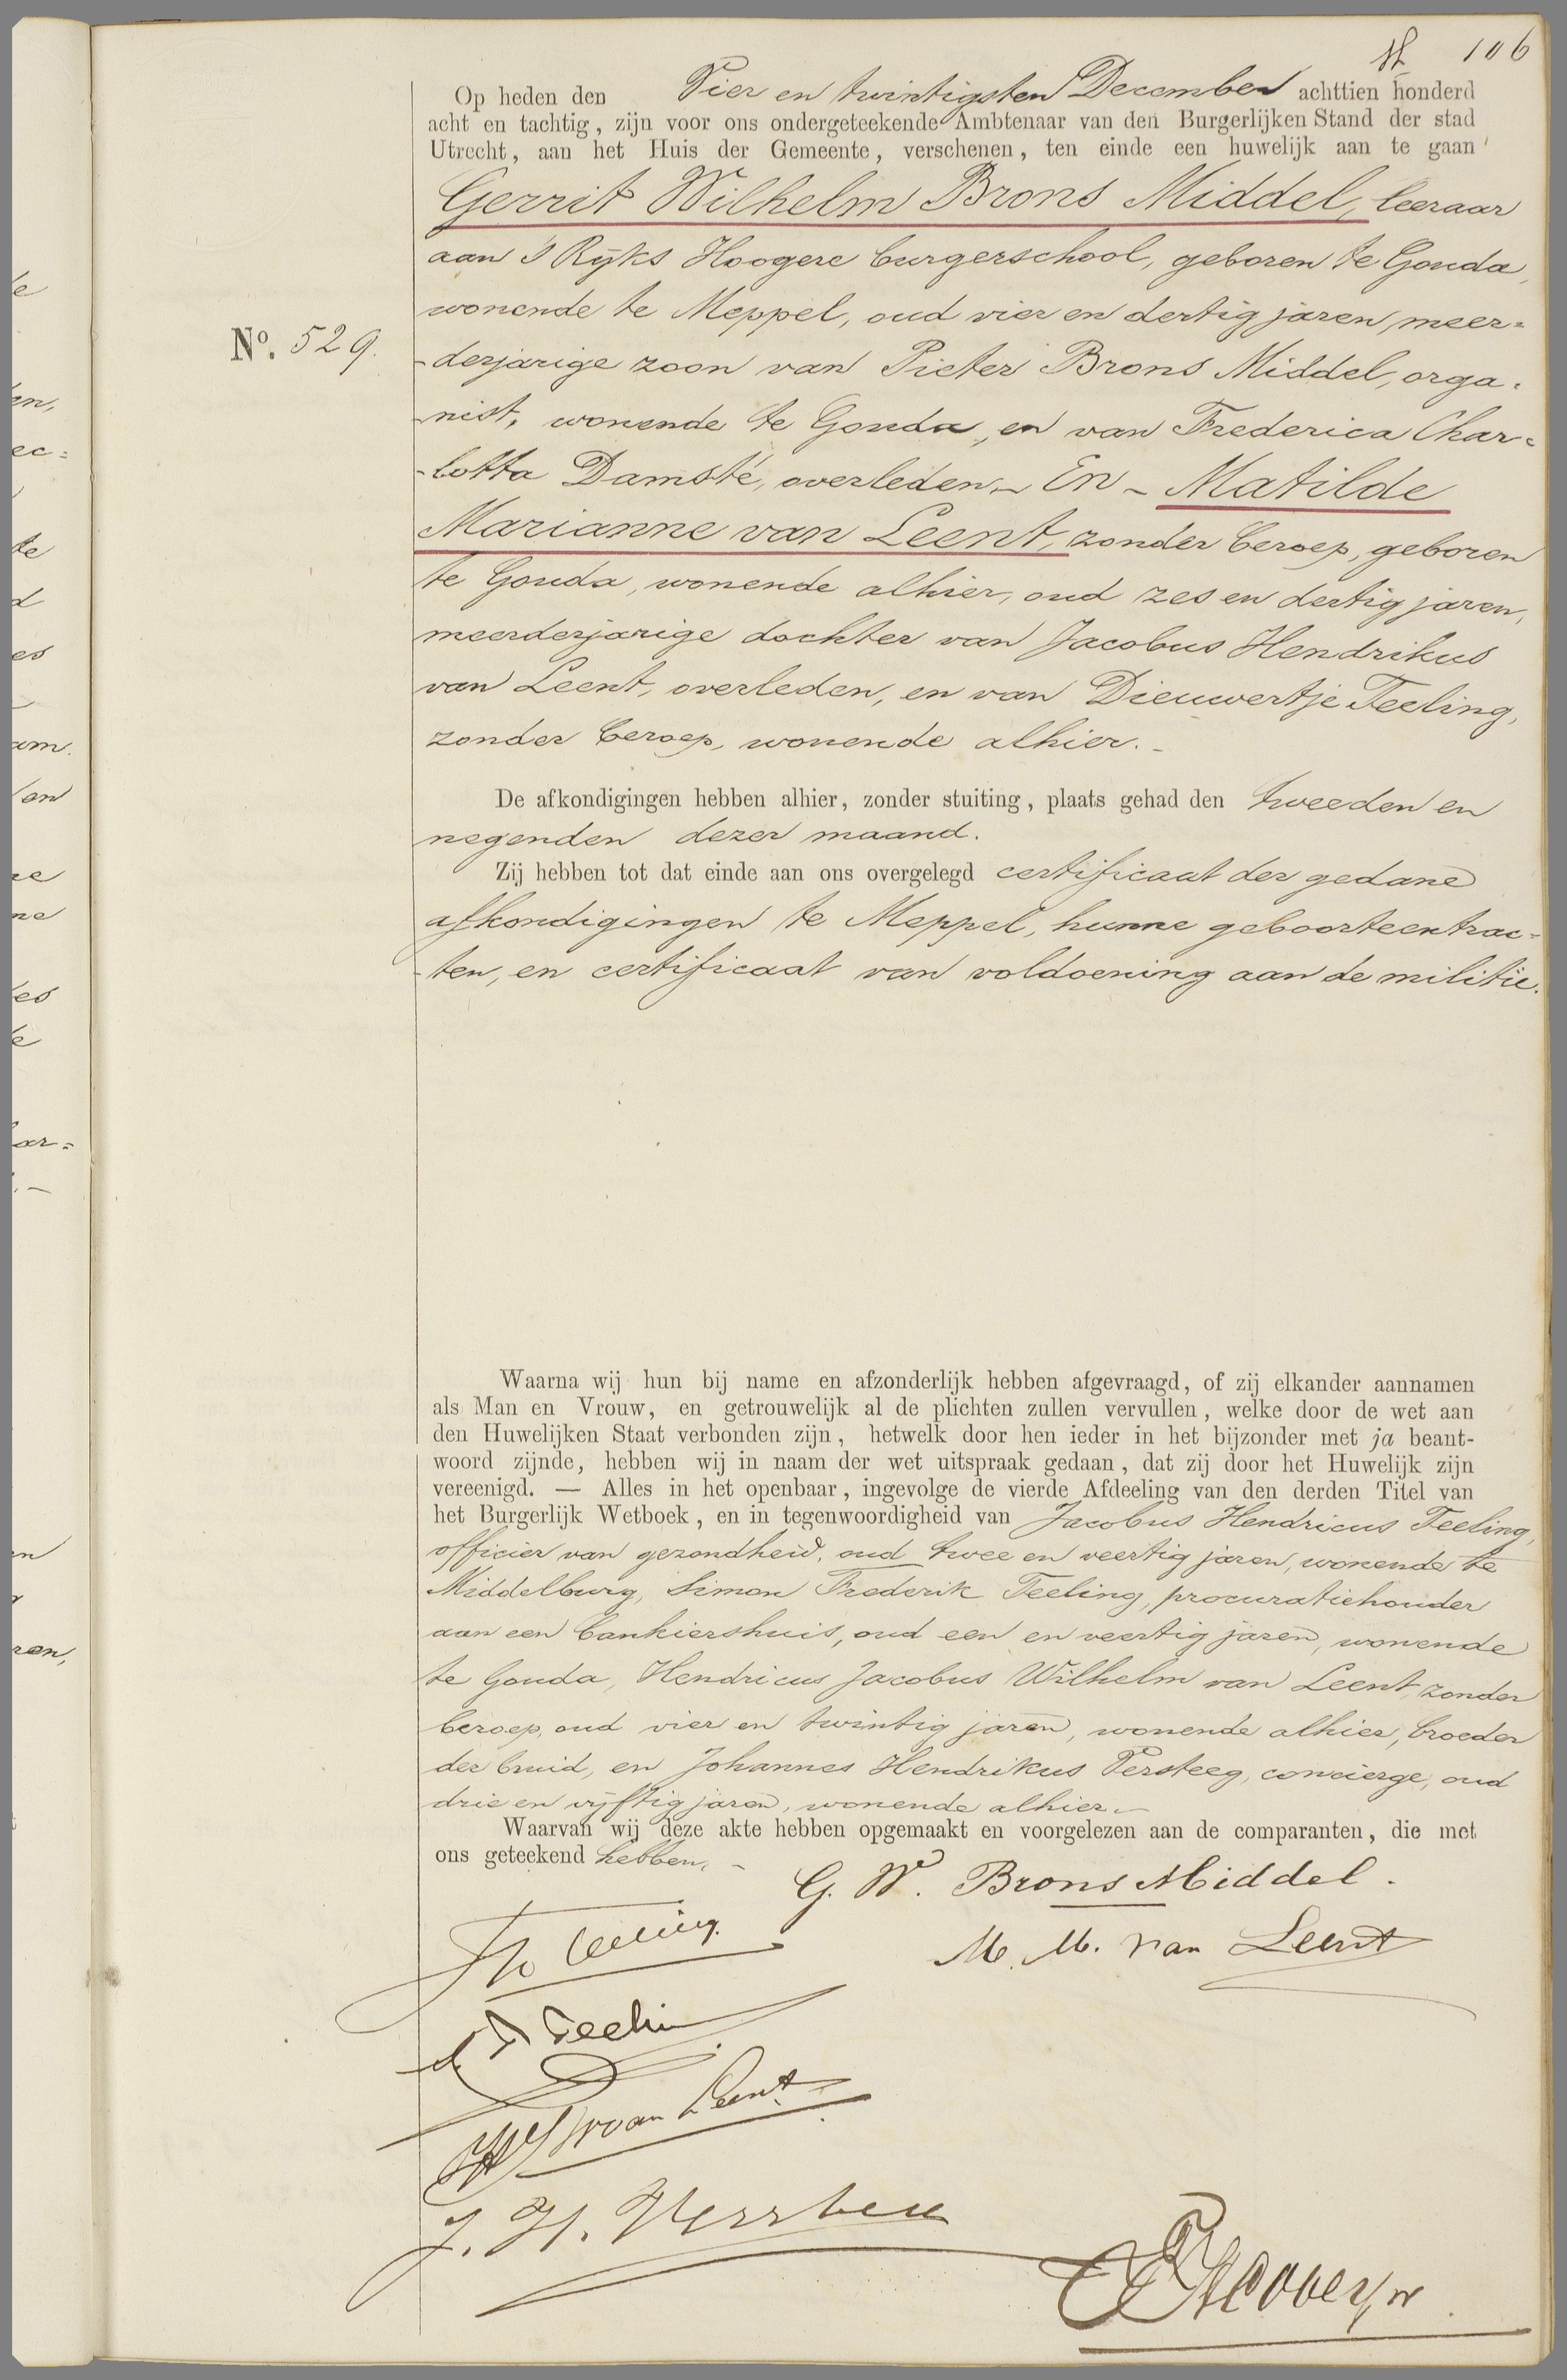 106
Op heden den Vier en twintigsten December achttien honderd
acht en tachtig, zijn voor ons ondergeteekende Ambtenaar van den Burgerlijken Stand der stad
Utrecht, aan het Huis der Gemeente, verschenen, ten einde een huwelijk aan te gaan
Gerrit Wilhelm Brons Middel, leeraar
aan 's Ryks Hoogere burgerschool, geboren te Gouda,
wonende te Meppel, oud vier en dertig jaren, meer=
No. 529.
-derjarige zoon van Pieter Brons Middel, orga=
nist, wonende te Gouda, en van Frederica Char=
-lotta Damsté, overleden. – En – Matilde
Marianne van Leent, zonder beroep, geboren
te Gouda, wonende alhier, oud zes en dertig jaren,
meerderjarige dochter van Jacobus Hendrikus
van Leent, overleden, en van Dieuwertje Teeling,
zonder beroep, wonende alhier. –
De afkondigingen hebben alhier, zonder stuiting, plaats gehad den tweeden en
negenden dezer maand.
Zij hebben tot dat einde aan ons overgelegd certificaat der gedane
afkondigingen te Meppel, hunne geboorteextrac=
-ten, en certificaat van voldoening aan de militie.
Waarna wij hun bij name en afzonderlijk hebben afgevraagd, of zij elkander aannamen
als Man en Vrouw, en getrouwelijk al de plichten zullen vervullen, welke door de wet aan
den Huwelijken Staat verbonden zijn, hetwelk door hen ieder in het bijzonder met ja beant-
woord zijnde, hebben wij in naam der wet uitspraak gedaan, dat zij door het Huwelijk zijn
vereenigd. — Alles in het openbaar, ingevolge de vierde Afdeeling van den derden Titel van
het Burgerlijk Wetboek, en in tegenwoordigheid van Jacobus Hendricus Teeling,
officier van gezondheid, oud twee en veertig jaren, wonende te
Middelburg, Simon Frederik Teeling, procuratiehouder
aan een bankiershuis, oud een en veertig jaren, wonende
te Gouda, Hendricus Jacobus Wilhelm van Leent, zonder
beroep, oud vier en twintig jaren, wonende alhier, broeder
der bruid, en Johannes Hendrikus Versteeg, concierge, oud
drie en vyftig jaren, wonende alhier. –
Waarvan wij deze akte hebben opgemaakt en voorgelezen aan de comparanten, die met
ons geteekend hebben. –
G. W. Brons Middel.
Teeling.
M. M. van Leent
Teelin
HJW van Leent
J. H. Versteeg